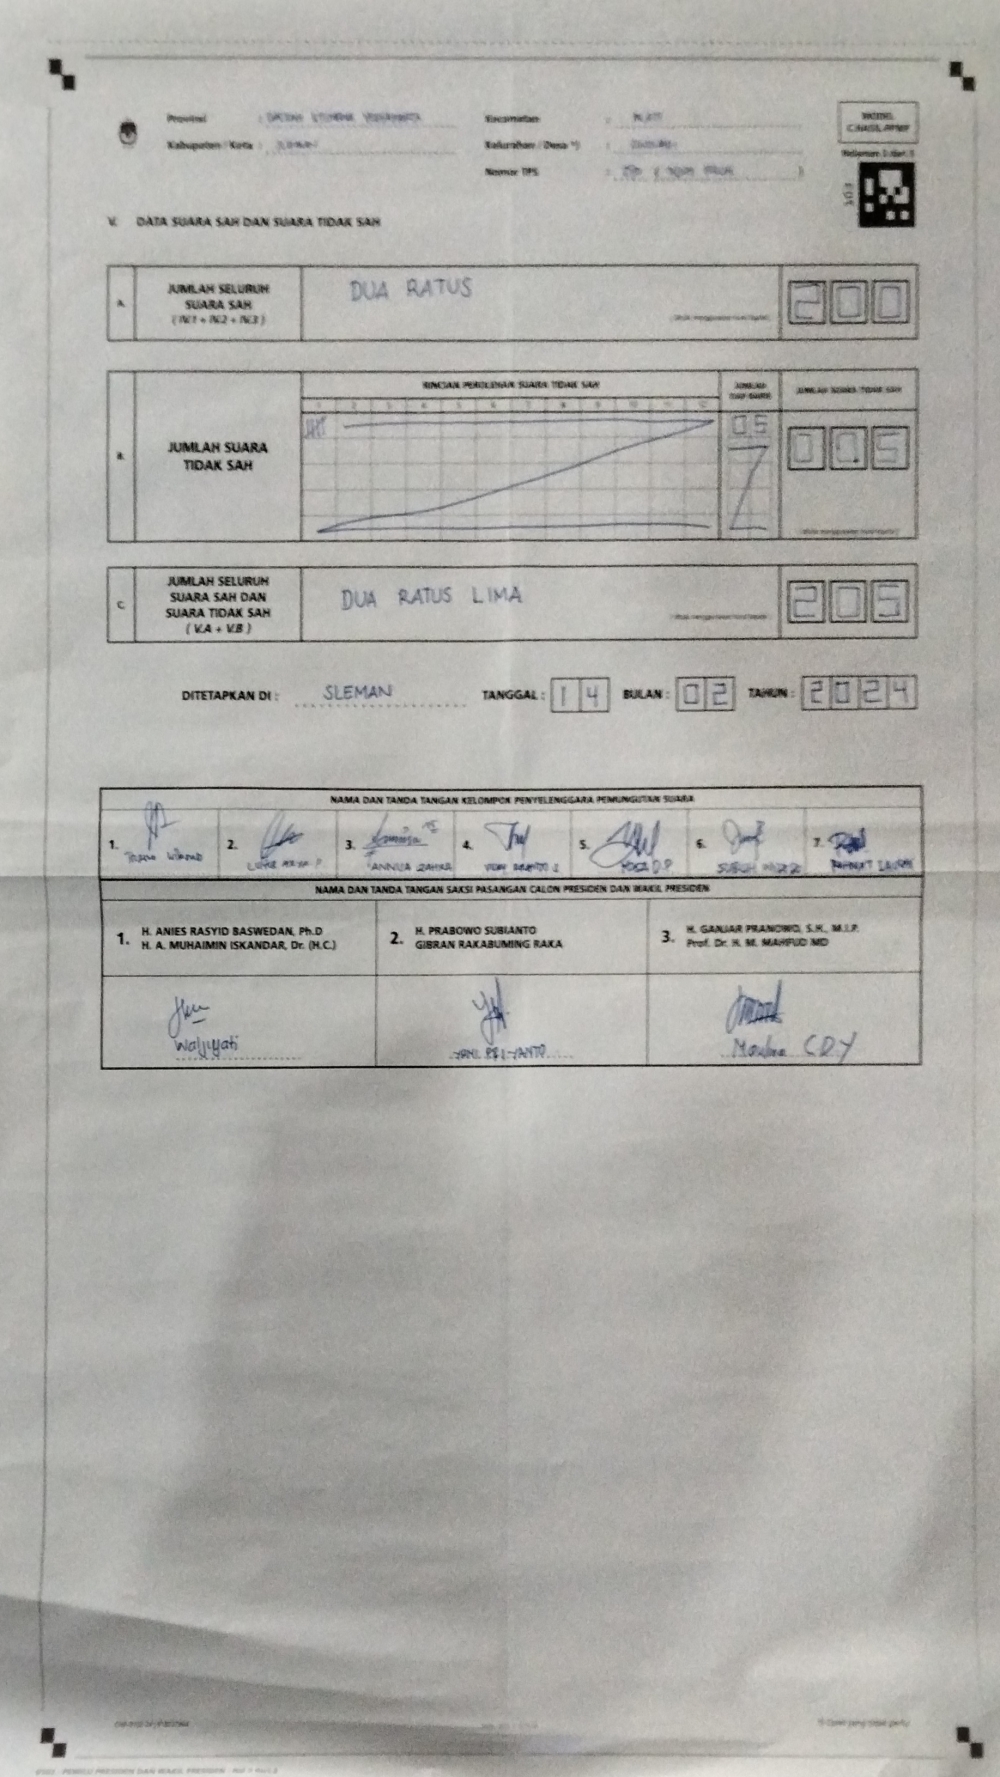 Provinsi : DAERAH ISTIMEWA YOGYAKARTA
Kecamatan : MLATI
MODEL
C.HASIL-PPWP
Kabupaten / Kota : SLEMAN
Kelurahan / Desa *) :
Halaman 3 dari 3
Nomor TPS :
V. DATA SUARA SAH DAN SUARA TIDAK SAH
A. JUMLAH SELURUH
SUARA SAH
( IV.1 + IV.2 + IV.3 )
DUA RATUS
200
B. JUMLAH SUARA
TIDAK SAH
RINCIAN PEROLEHAN SUARA TIDAK SAH
JUMLAH
TIAP BARIS
JUMLAH SUARA TIDAK SAH
1 2 3 4 5 6 7 8 9 10 11 12
05
005
C. JUMLAH SELURUH
SUARA SAH DAN
SUARA TIDAK SAH
( V.A + V.B )
DUA RATUS LIMA
205
DITETAPKAN DI : SLEMAN TANGGAL : 14 BULAN : 02 TAHUN : 2024
NAMA DAN TANDA TANGAN KELOMPOK PENYELENGGARA PEMUNGUTAN SUARA
1. 2. 3. 4. 5. 6. 7.
ANNISA ZAHRA
YOGA D.P
NAMA DAN TANDA TANGAN SAKSI PASANGAN CALON PRESIDEN DAN WAKIL PRESIDEN
1. H. ANIES RASYID BASWEDAN, Ph.D
H. A. MUHAIMIN ISKANDAR, Dr. (H.C.)
2. H. PRABOWO SUBIANTO
GIBRAN RAKABUMING RAKA
3. H. GANJAR PRANOWO, S.H., M.I.P.
Prof. Dr. H. M. MAHFUD MD
Waljiyati
YANI PRIYANTO
Maulina CDY
*) Coret yang tidak perlu